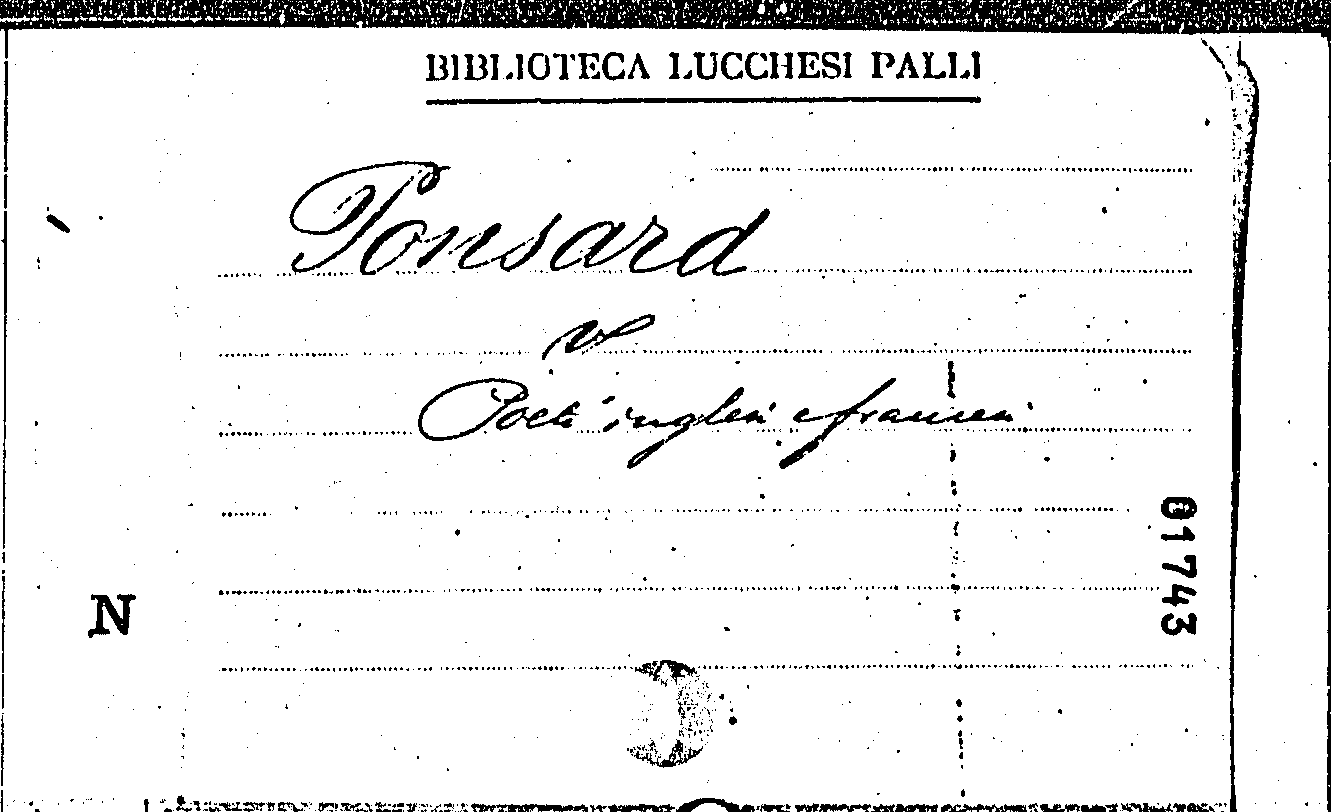 BIBLIOTECA LUCCHESI PALLI
Ponsard
v
Poeti inglesi e francesi
01743
N